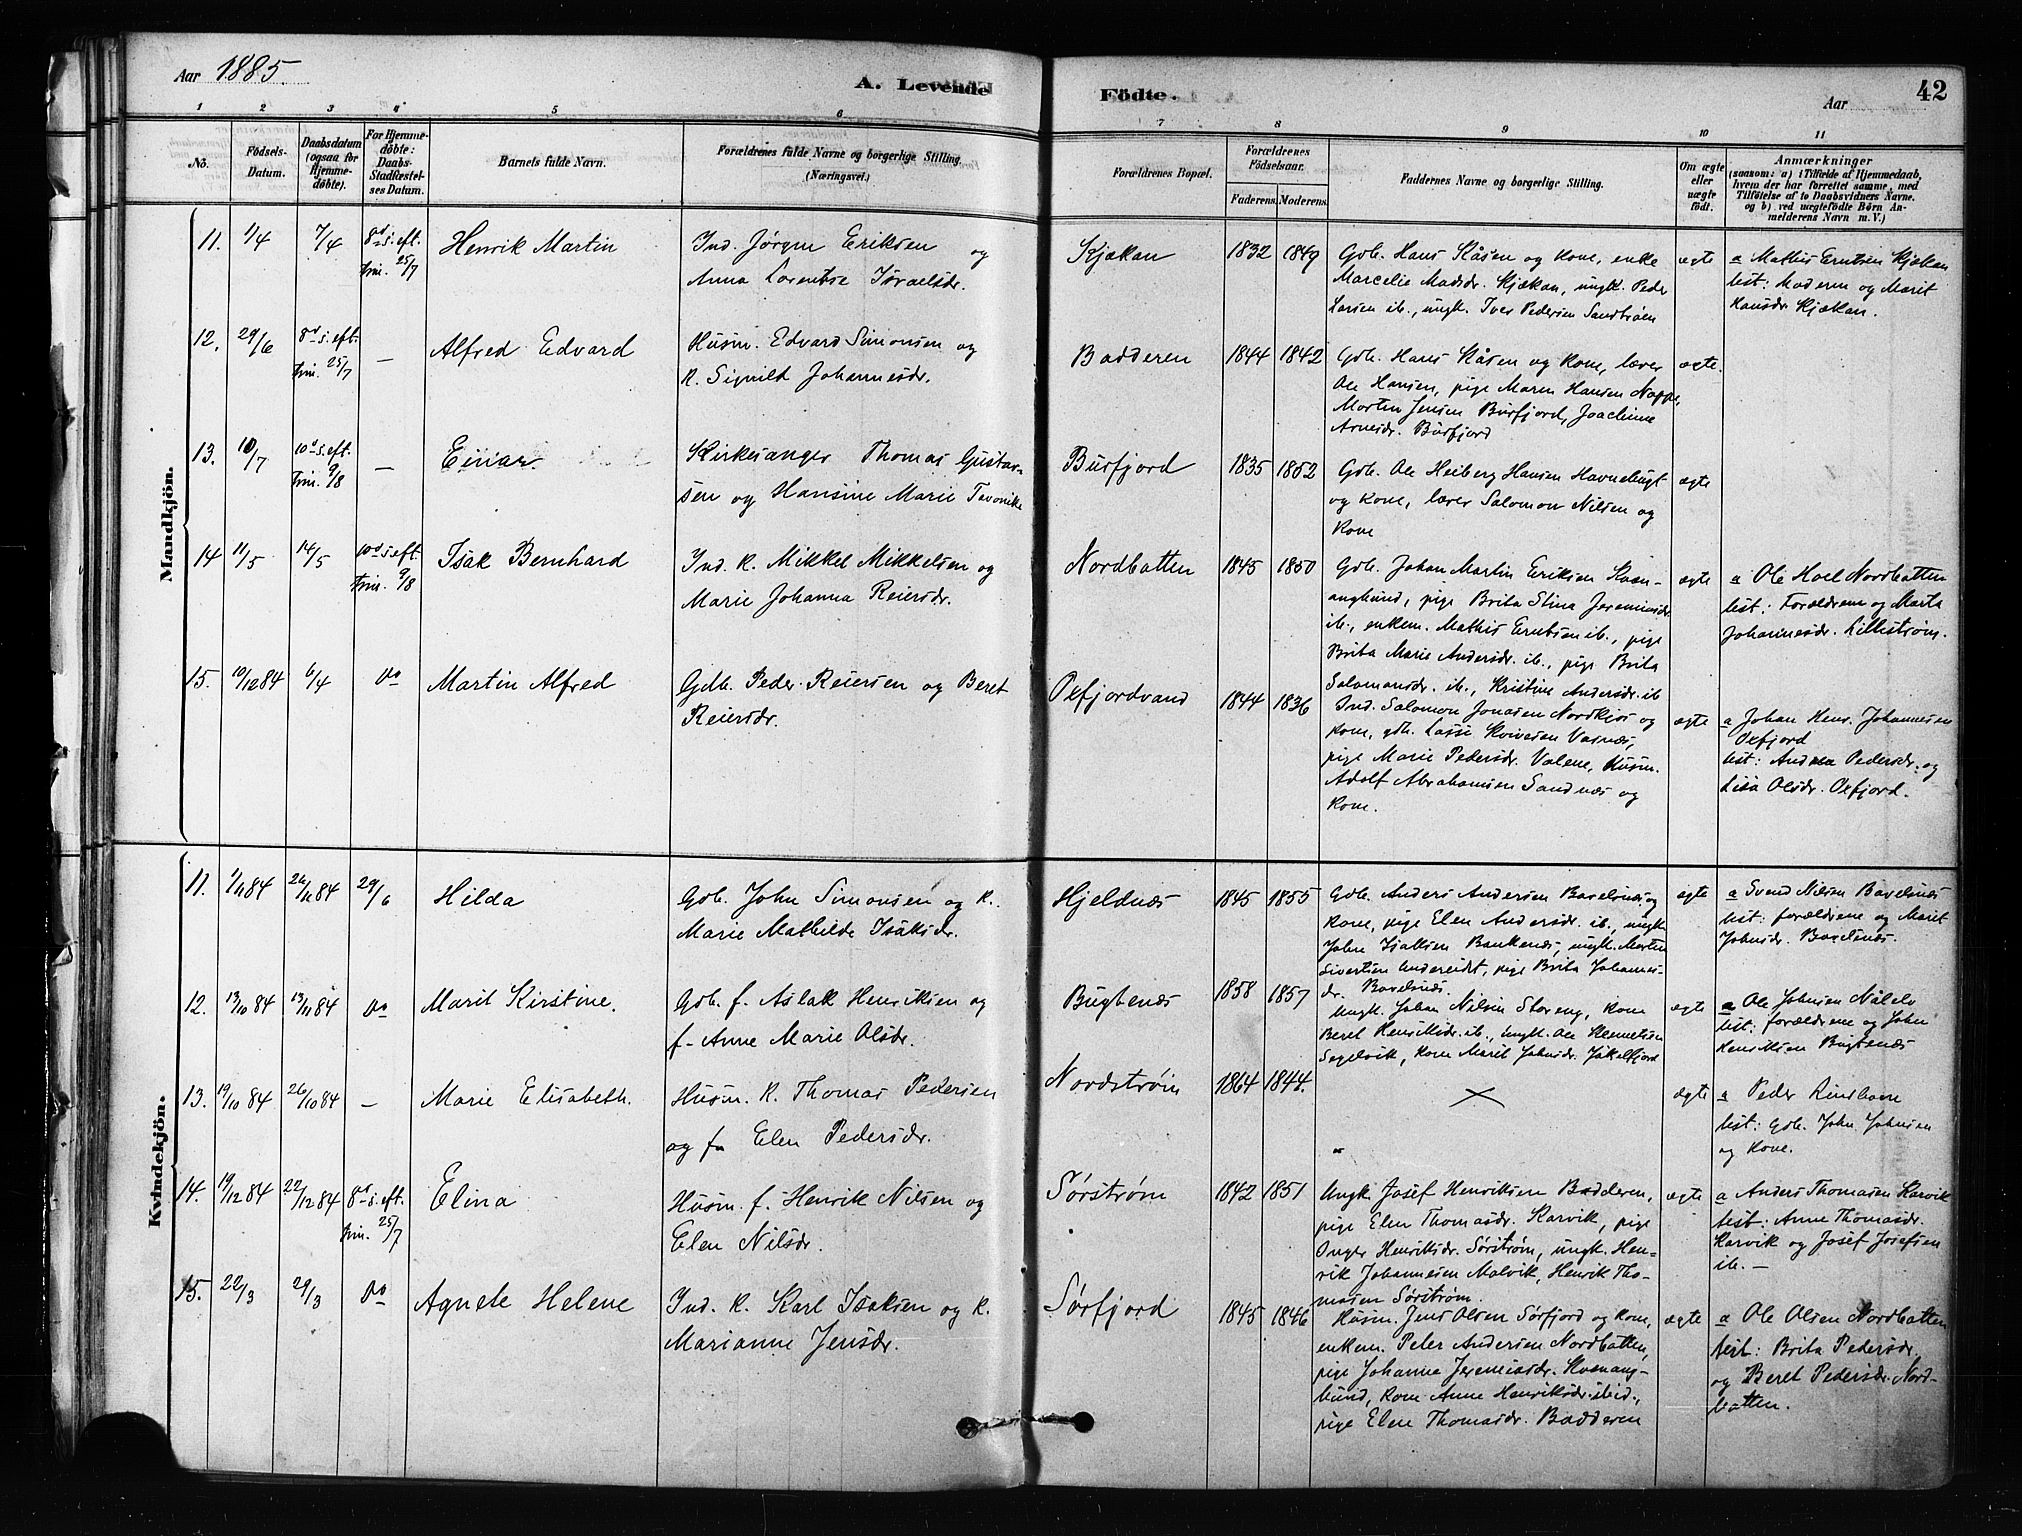 Aar 1885
A. Levende Födte.
Aar
42
1 2 3 4 5 6 7 8 9 10 11
No.
Födsels-Datum.
Daabsdatum (ogsaa for Hjemme-döbte).
For Hjemme-döbte: Daabs-Stadfæstel-ses Datum.
Barnets fulde Navn.
Forældrenes fulde Navne og borgerlige Stilling.
(Næringsvei.)
Forældrenes Bopæl.
Forældrenes Födselsaar.
Faderens. Moderens.
Faddernes Navne og borgerlige Stilling.
Om ægte eller uægte födt.
Anmærkninger
(saasom: a) i Tilfælde af Hjemmedaab,
hvem der har forrettet samme, med
Tilföielse af to Daabsvidners Navne.
og b) ved uægtefödte Börn An-
melderens Navn m. V.)
Mandkjön.
11. 1/4 7/4 8d s. eft. trin. 25/7
Henrik Martin
Ind. Jørgen Eriksen og
Anna Lorentse Israelsdr.
Kjækan 1832 1849
Gdb. Hans Kåsen og kone, enke
Marcelie Madsdr. Kjækan, ungk. Peder
Larsen ib., ungk. Iver Pedersen Sandbråen
ægte
a Mathis Erntsen Kjækan
test: Moderen og Marit
Hansdr. Kjækan.
12. 29/6 8d s. eft. trin. 25/7 —
Alfred Edvard
Husm. Edvard Simonsen og
K. Signild Johannesdr.
Badderen 1844 1842
Gdb. Hans Kåsen og kone, lærer
Ole Hansen, pige Maren Hansen Noppe,
Morten Jensen Burfjord, Joachime
Arnesdr. Burfjord
ægte.
13. 10/7 10d s. eft. trin. 9/8 —
Einar
Kirkesanger Thomas Gustav-
sen og Hansine Marie Tevonike
Burfjord 1835 1852
Gdb. Ole Heiberg Hansen Havnebugt
og kone, lærer Salomon Nilsen og
kone
ægte
14 11/5 14/5 10d s. eft. trin. 9/8
Isak Bernhard
Ind. K. Mikkel Mikkelsen og
Marie Johanna Reiersdr.
Nordbotten 1845 1850
Gdb. Johan Martin Eriksen Kvæn-
angbund, pige Brita Stina Jeremiasdr
ib., enkem. Mathis Erntsen ib., pige
Brita Marie Andersdr. ib., pige Brita
Salomonsdr. ib., Kristine Andersdr. ib
ægte
a Ole Hoel Nordbotten
test: Forældrene og Marta
Johannesdr. Lillestrøm.
15. 10/12 84 6/4 do
Martin Alfred
Gdb. Peder Reiersen og Beret
Reiersdr.
Oxfjordvand 1844 1836
Ind. Salomon Jonasen Nordkjos og
kone, gdb. Lasse Kvivesen Vasnes,
pige Marie Pedersdr. Valene, Husm.
Adolf Abrahamsen Sandnæs og
kone.
ægte
a Johan Henr. Johannesen
Oxfjord
test: Andrea Pedersdr. og
Lisa Olsdr. Oxfjord.
Kvindekjön.
11. 1/11 84 26/11 84 29/6
Hilda
Gdb. John Simonsen og K.
Marie Mathilde Isaksdr.
Hjeldnæs 1845 1855
Gdb. Anders Andersen Bavelsnæs og
kone, pige Elen Andersdr. ib., ungk.
John Isaksen Bankenæs, ungk. Morten
Sivertsen Undereidet, pige Brita Johannes-
dr. Bavelsnæs.
ægte
a Svend Nilsen Bavelsnæs
test: forældrene og Marit
Johnsdr. Bavelsnæs.
12. 13/10 84 13/11 84 do
Marit Kirstine.
Gdb. f. Aslak Henriksen og
f. Anne Marie Olsdr.
Bugtenæs 1858 1857
Ungk. Johan Nilsen Storeng, kone
Beret Henriksdr. ib., ungk. Ole Klemetsen
Segelvik, kone Marit Johnsdr. Jøkelfjord
ægte
a Ole Johnsen Nålelv
test: forældrene og John
Henriksen Bugtenæs
13. 19/10 84 26/10 84 —
Marie Elisabeth.
Husm. K. Thomas Pedersen
og fa Elen Pedersdr.
Nordstrøm 1864 1844.
ægte
a Peder
test: Gdb. John Johnsen
og kone.
14. 19/12 84 22/12 84 8d s. eft. trin. 25/7
Elina
Husm. f. Henrik Nilsen og
Elen Nilsdr.
Sørstrøm 1842 1851
Ungk. Josef Henriksen Badderen,
pige Elen Thomasdr. Karvik, pige
Inger Henriksdr. Sørstrøm, ungk. Hen-
rik Johannesen Malvik, Henrik Tho-
masen Sørstrøm.
ægte
a Anders Thomasen Karvik
test: Anne Thomasdr.
Karvik og Josef Josefsen
ib. —
15. 22/3 29/3 do
Agnete Helene
Ind. K. Karl Isaksen og K.
Marianne Jensdr.
Sørfjord 1845 1846
Husm. Jens Olsen Sørfjord og kone,
enkem. Peter Andersen Nordbotten,
pige Johanne Jeremiasdr. Kvænang-
bund, kone Anne Henriksdr. ibid.,
pige Elen Thomasdr. Badderen
ægte
a Ole Olsen Nordbotten
test: Brita Pedersdr.
og Beret Pedersdr. Nord-
botten.